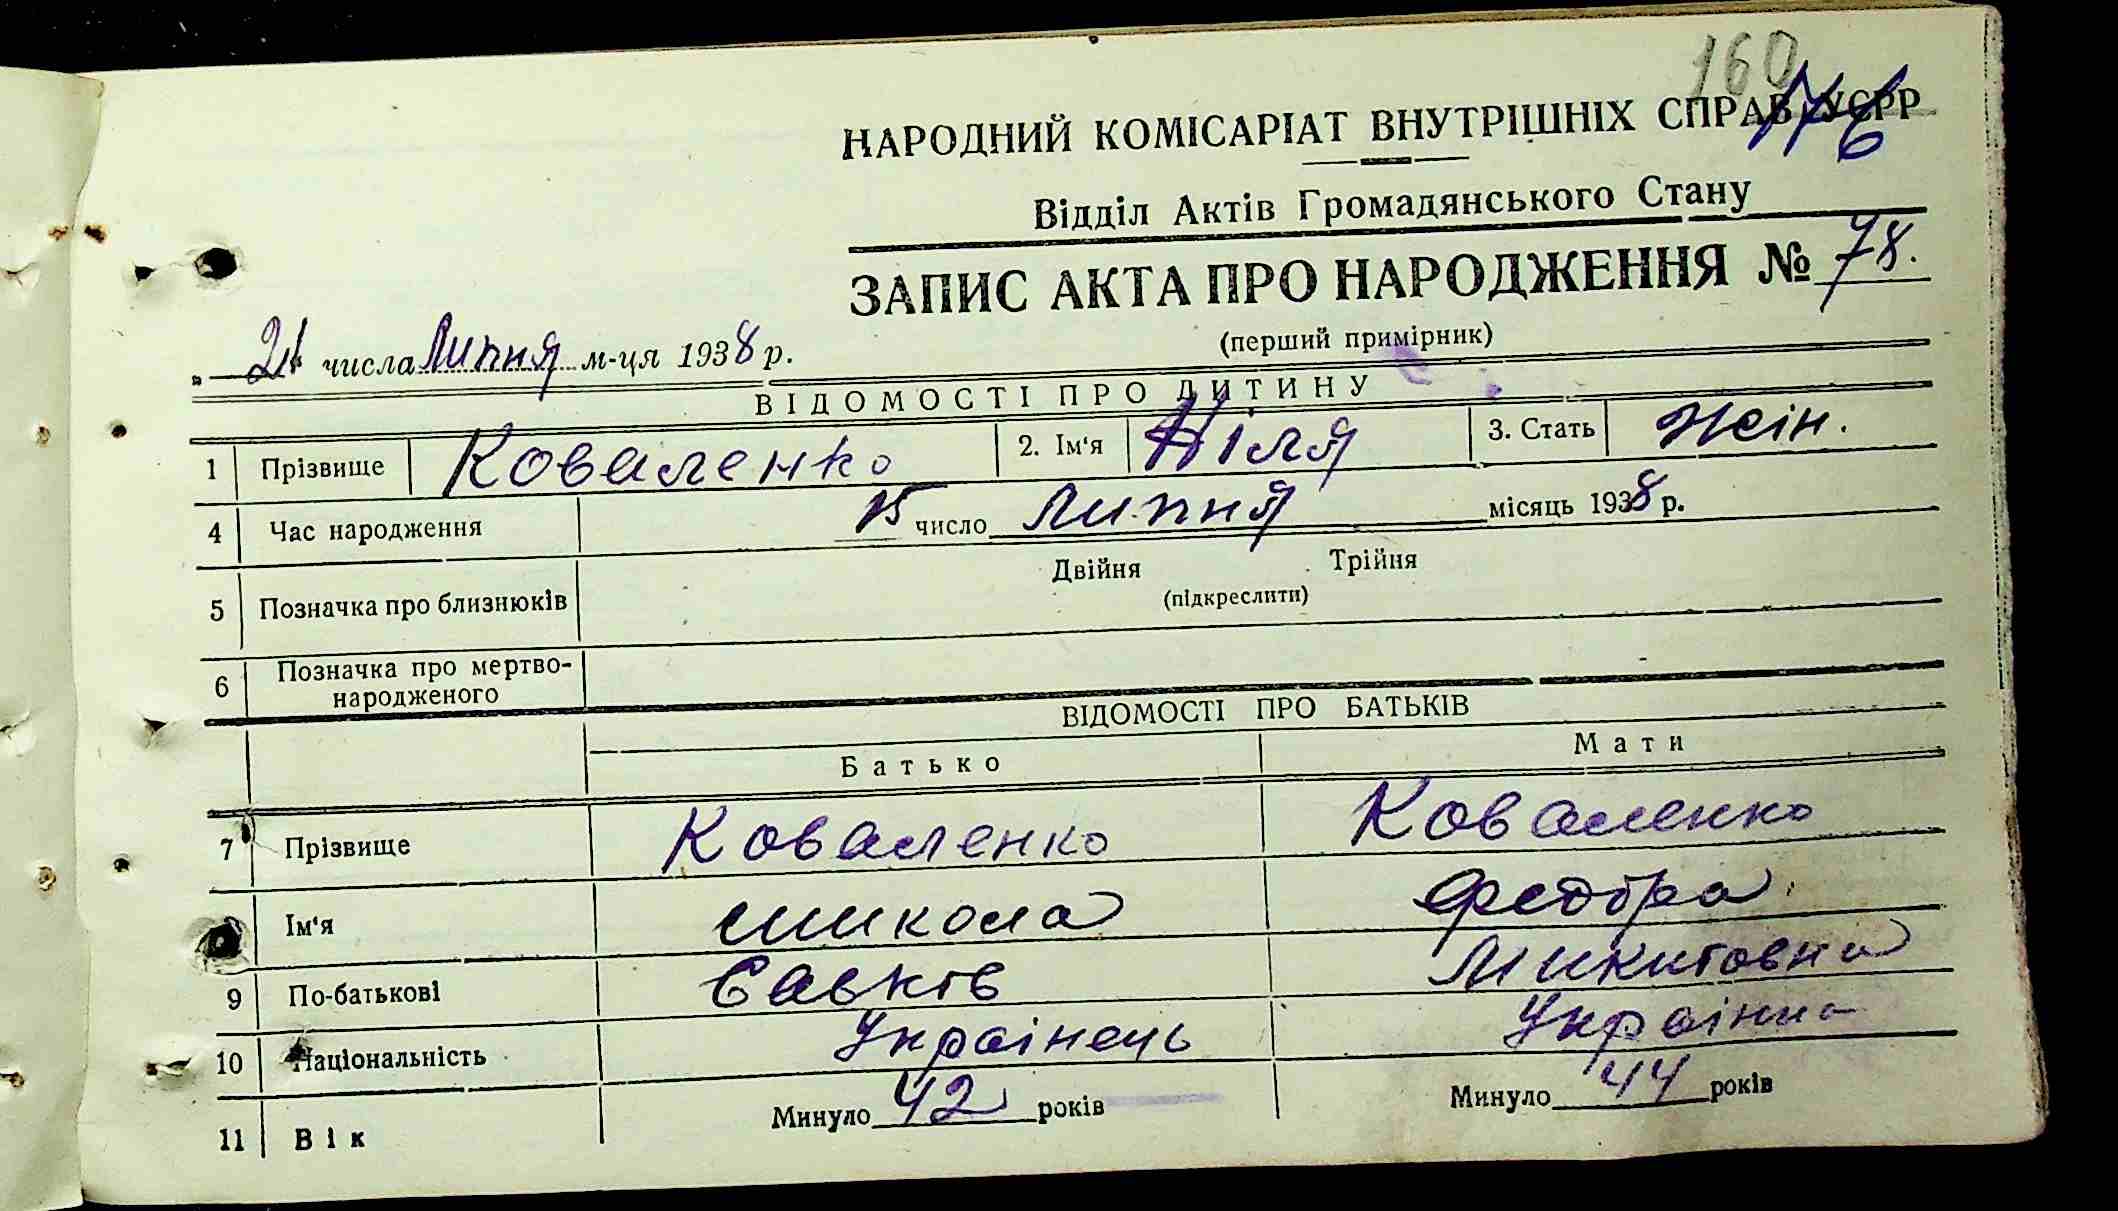 160
176
НАРОДНИЙ КОМІСАРІАТ ВНУТРІШНІХ СПРАВ УСРР
Відділ Актів Громадянського Стану
ЗАПИС АКТА ПРО НАРОДЖЕННЯ № 78.
(перший примірник)
„ 21 числа Липня м-ця 1938 р.
ВІДОМОСТІ ПРО ДИТИНУ
1 Прізвище Коваленко 2. Ім'я Ніля 3. Стать жін.
4 Час народження 15 число Липня місяць 1938 р.
Двійня Трійня
5 Позначка про близнюків (підкреслити)
6 Позначка про мертво-
народженого
ВІДОМОСТІ ПРО БАТЬКІВ
Батько Мати
7 Прізвище Коваленко Коваленко
Ім'я Микола Федора
9 По-батькові Савків Микитовна
10 Національність Украінець Украінка
11 Вік Минуло 42 років Минуло 44 років